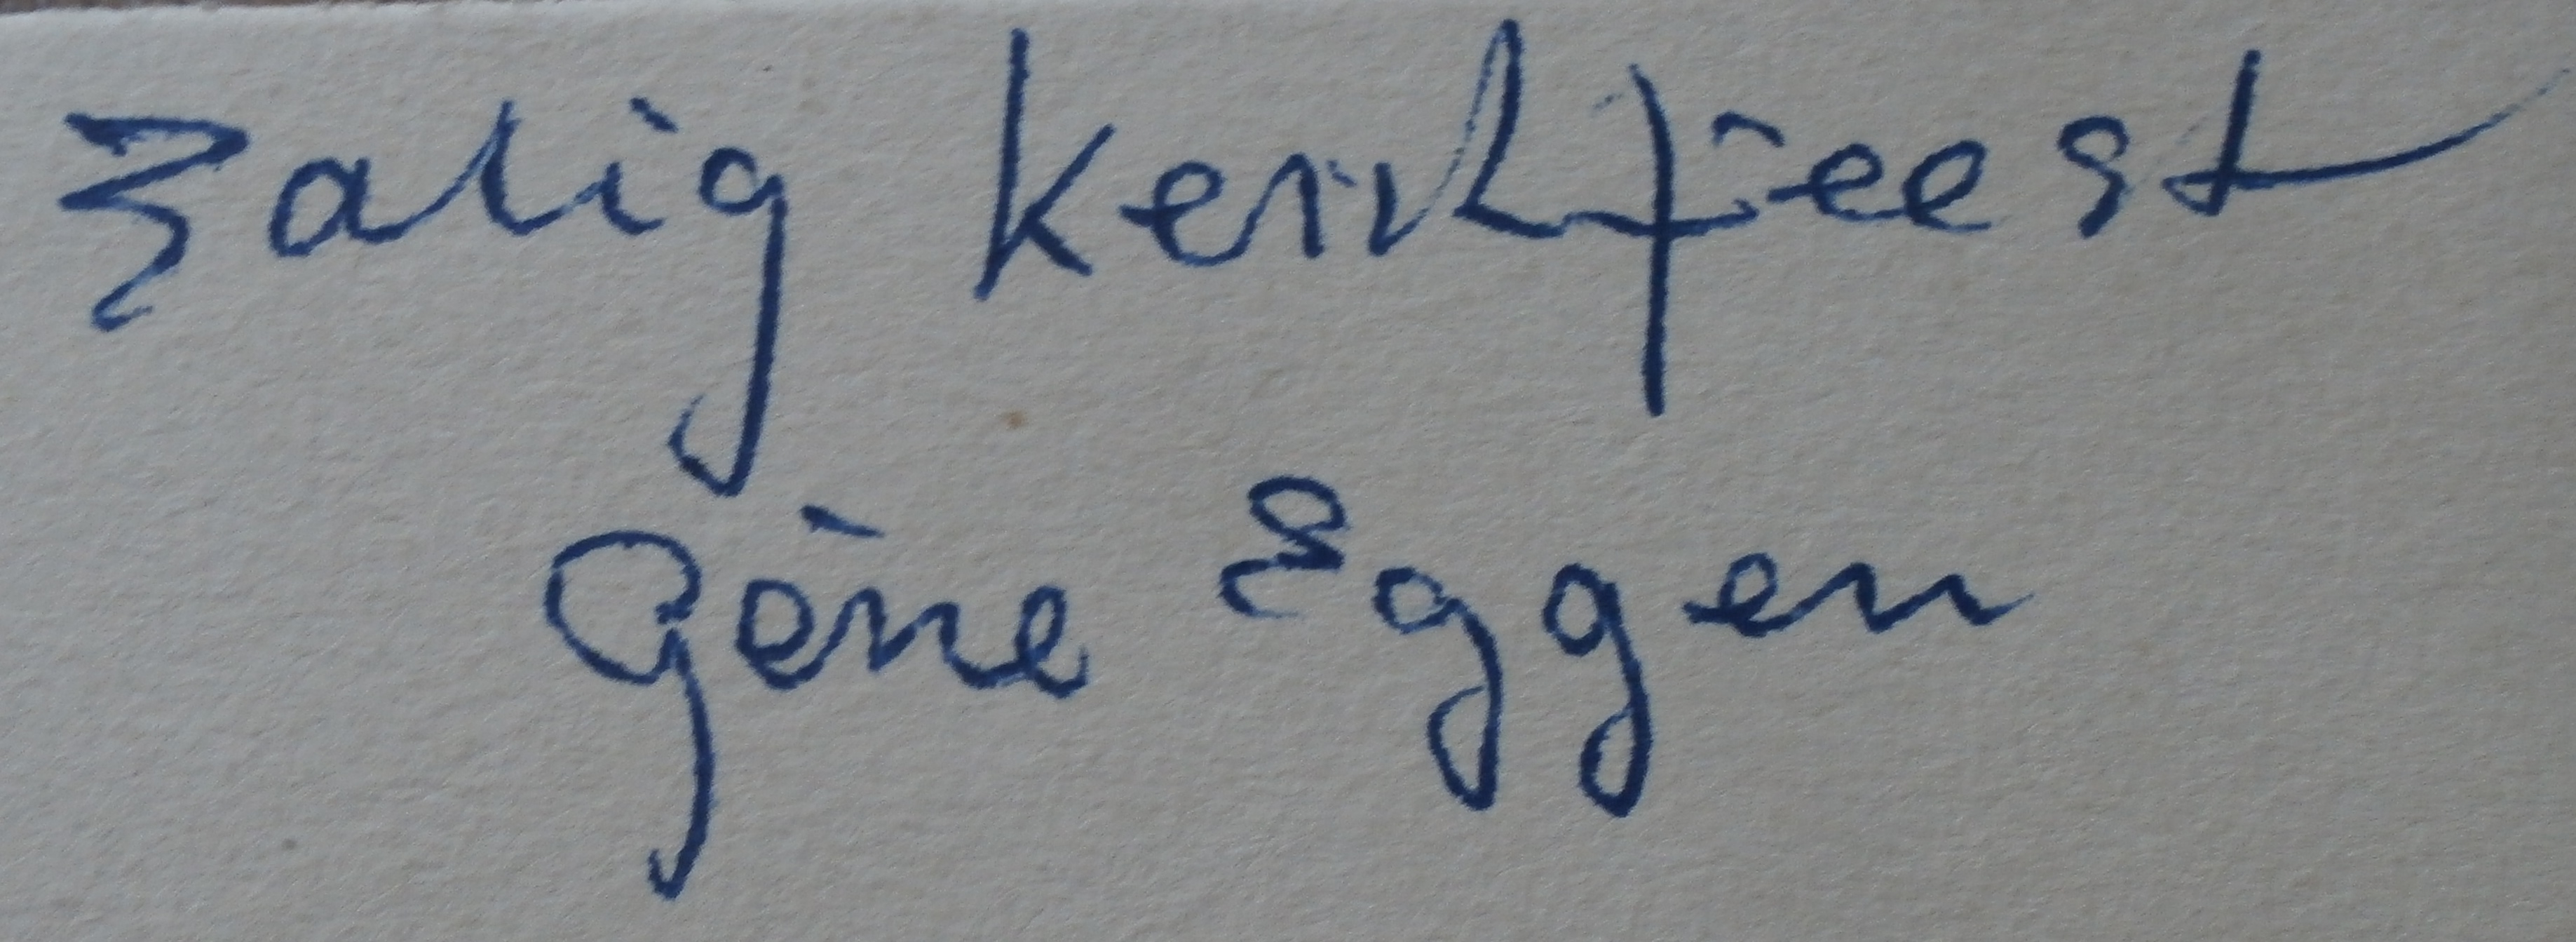 Zalig kerstfeest
Gène Eggen